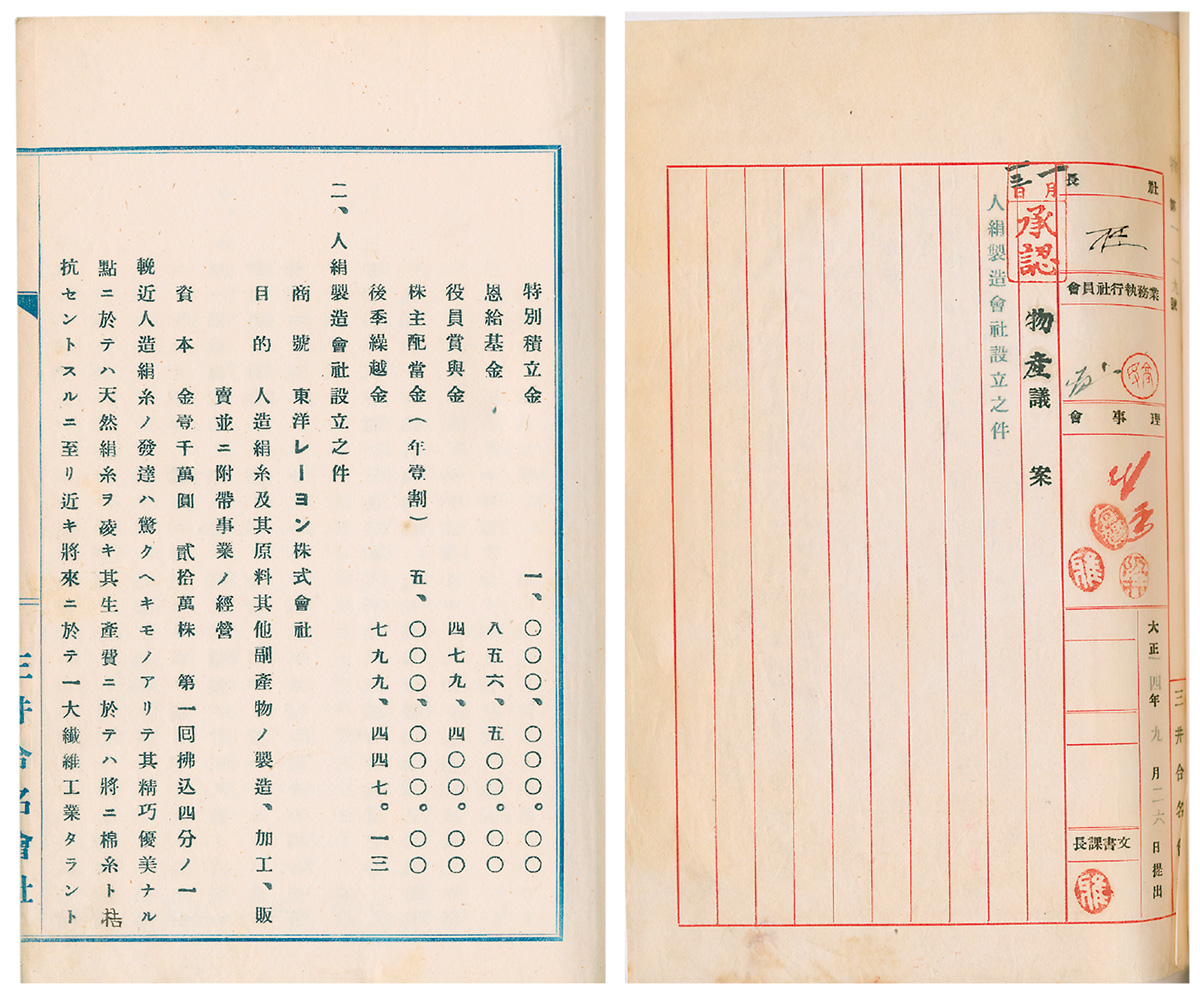 社長
業務執行社員會
理事會
大正一四年九月二六日提出
文書課長
三井合名會
月
日
承認
物産議案
人絹製造會社設立之件
特別積立金 一、〇〇〇、〇〇〇。〇〇
恩給基金 八五六、五〇〇。〇〇
役員賞與金 四七九、四〇〇。〇〇
株主配當金(年壹割) 五、〇〇〇、〇〇〇。〇〇
後季繰越金 七九九、四四七。一三
二、人絹製造會社設立之件
商號 東洋レーヨン株式會社
目的 人造絹糸及其原料其他副產物ノ製造、加工、販
賣並ニ附帶事業ノ經營
資本 金壹千萬圓 貳拾萬株 第一回拂込四分ノ一
輓近人造絹糸ノ發達ハ驚クヘキモノアリテ其精巧優美ナル
點ニ於テハ天然絹糸ヲ凌キ其生產費ニ於テハ將ニ棉糸ト拮
抗セントスルニ至リ近キ將來ニ於テ一大纖維工業タラント
三井合名會社